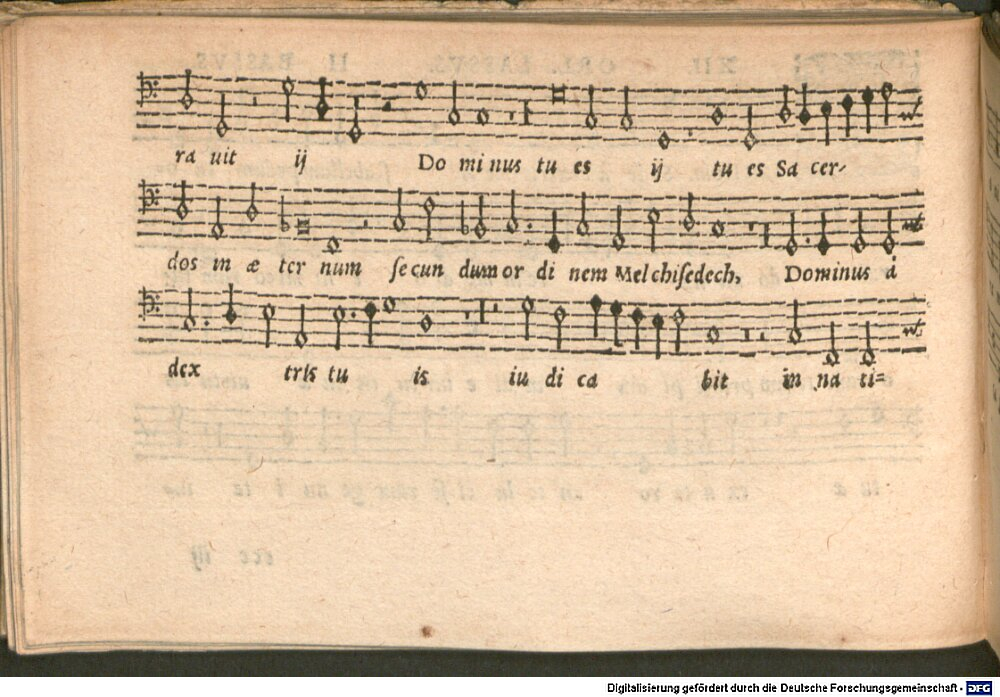 ra uit ij Do mi nus tu es ij tu es Sa cer-
dos in æ ter num ſecun dum or di nem Melchiſedech, Dominus á
dex tris tu is iu di ca bit in na ti=
Digitalisierung gefördert durch die Deutsche Forschungsgemeinschaft - DFG